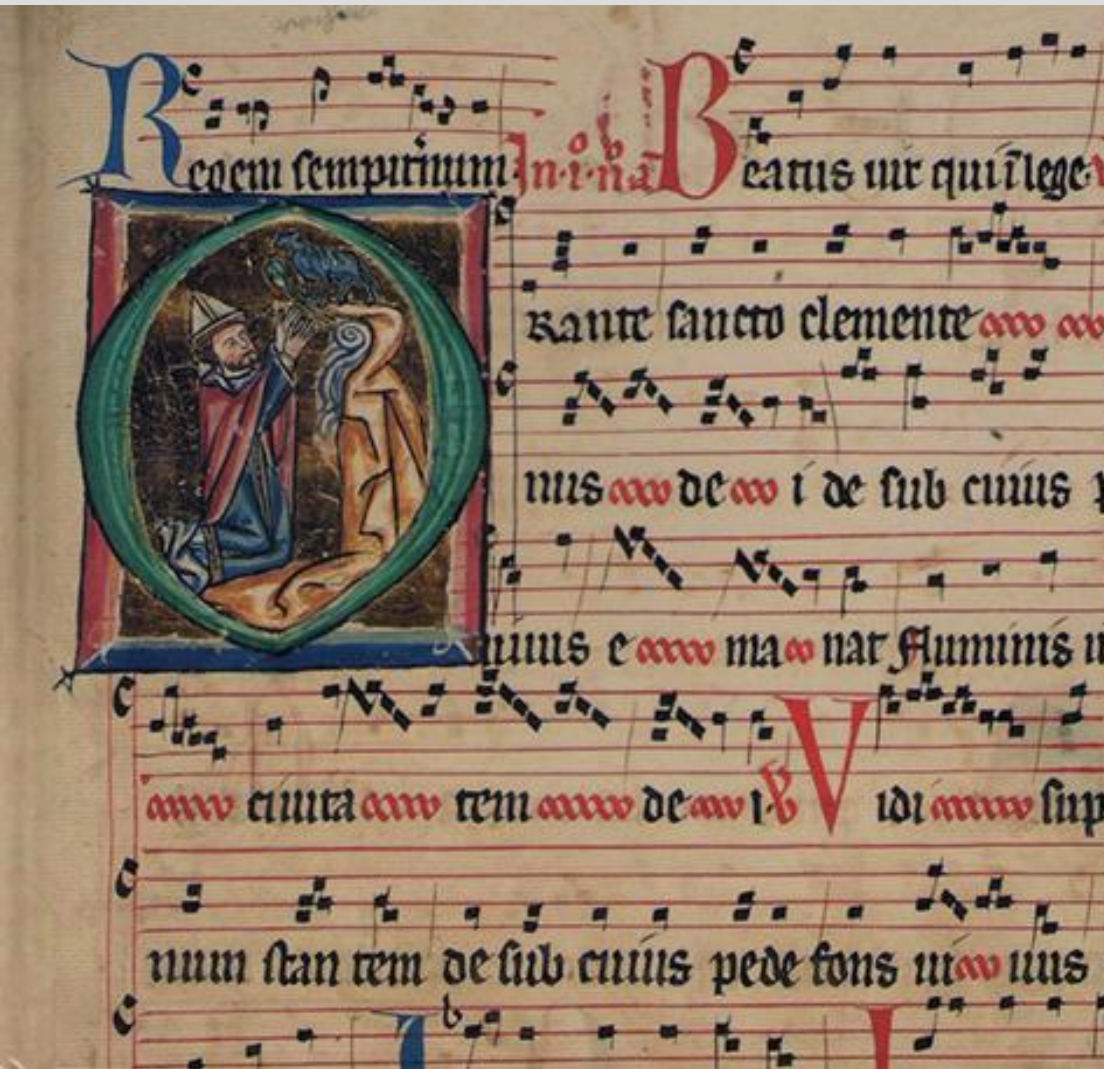 Regem sempiternum In·i·no Beatus uir qui ī lege
Orante sancto clemente
nus de i de sub cuius
uiuus e ma nat fluminis
ciuita tem de i· V idi sup
num stan tem de sub cuius pede fons ui uus